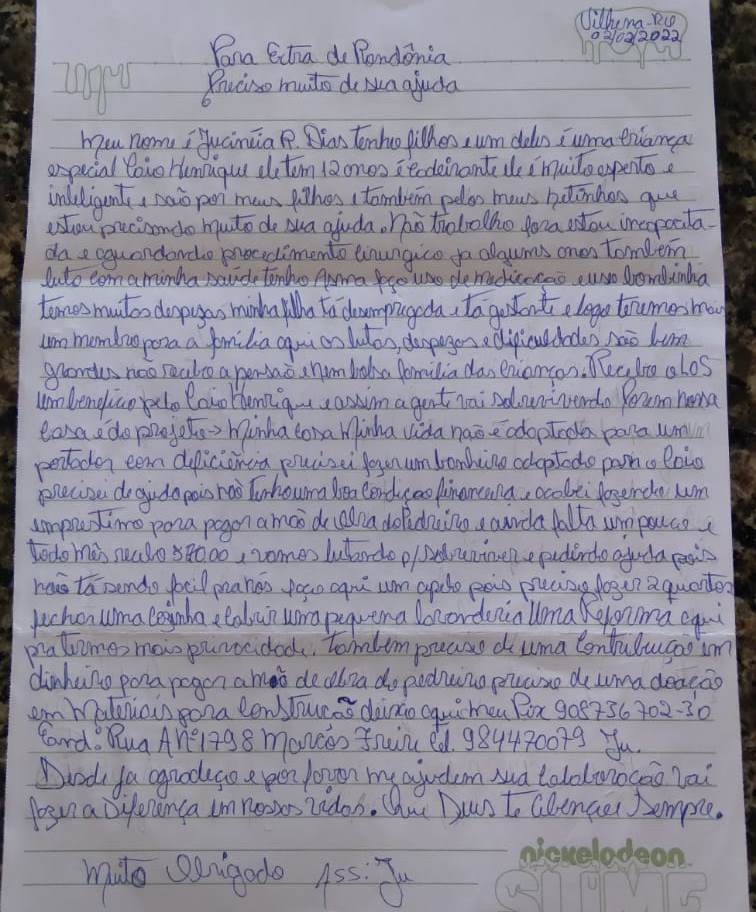 Vilhena-RO
02/02/2022
Para Extra de Rondônia
Preciso muito de sua ajuda
Meu nome é Jucinéia R. Dias tenho filhos e um deles é uma criança
especial Caio Henrique ele tem 12 anos é cadeirante ele é muito esperto e
inteligente e são por meus filhos e também pelos meus netinhos que
estou precisando muito de sua ajuda. não trabalho fora estou incapacita-
da e aguardando procedimento cirurgico ja alguns anos também
luto com a minha saúde tenho Asma faço uso de medicação e uso bombinha
temos muitos despezas minha filha tá desempregada e tá gestante e logo teremos mais
um membro para a família aqui as lutas, despezas e dificuldades são bem
grandes não recebo a pensão e nem bolsa família das crianças. Recebo o LOS
um benefício pelo Caio Henrique e assim a gente vai sobrevivendo Porem nossa
casa é do projeto → Minha casa Minha vida não é adaptada para um
portador com deficiência precisei fazer um banheiro adaptado para o Caio
precisei de ajuda pois não tenho uma boa condição financeira e acabei fazendo um
emprestimo para pagar a mão de obra do Pedreiro e ainda falta um pouco e
todo mês recebo 580.00 e vamos lutando p/ sobreviver e pedindo ajuda pois
não tá sendo facil pra nós faço aqui um apelo pois preciso fazer 2 quartos
fechar uma cozinha e cobrir uma pequena lavanderia Uma Reforma aqui
pra termos mais privacidade. também preciso de uma Contribuição em
dinheiro para pagar a mão de obra do pedreiro preciso de uma doação
em Materiais para construção deixo aqui meu Pix 908736702-30
End: Rua A Nº 1798 Marcos Freire Cel. 984470079 Ju.
Desde ja agradeço e por favor me ajudem sua colaboração vai
fazer a Diferença em nossos vidas. Que Deus te abençoe Sempre.
Muito Obrigado Ass: Ju
nickelodeon
SLIME